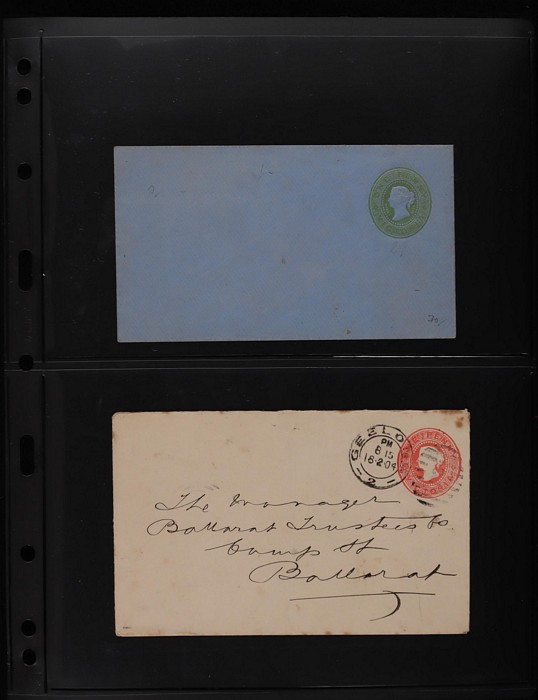 GEELO
PM
8 15
18·2·04
2
The Manager
Ballarat Trustees Co.
Camp St
Ballarat